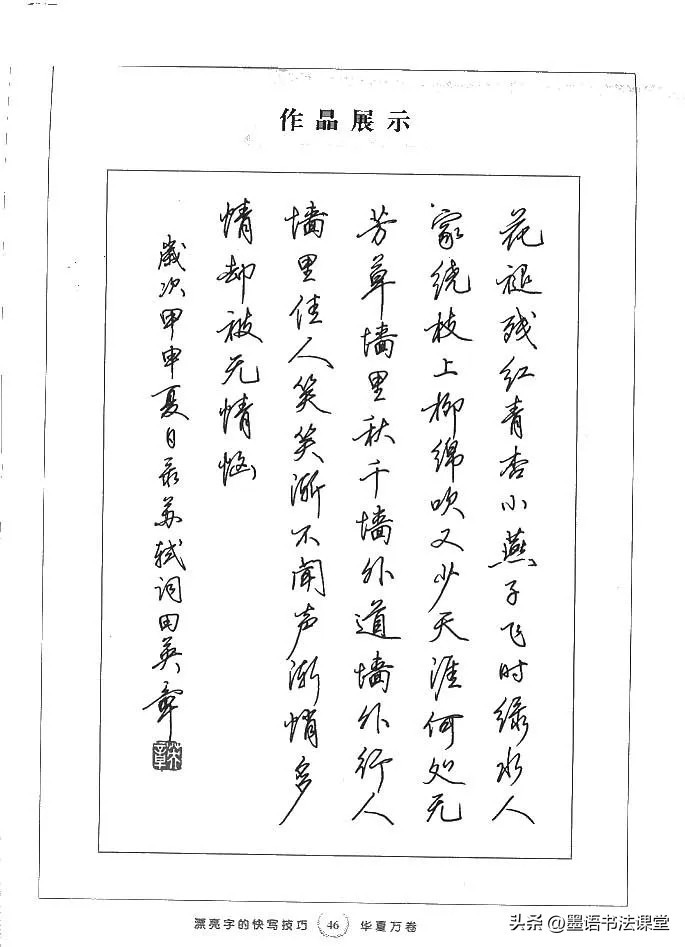 作品展示
花褪残红青杏小燕子飞时绿水人
家绕枝上柳绵吹又少天涯何处无
芳草墙里秋千墙外道墙外行人
墙里佳人笑笑渐不闻声渐悄多
情却被无情恼
歲次甲申夏日录苏轼词田英章
英章
漂亮字的快写技巧 46 华夏万卷
头条 @墨语书法课堂